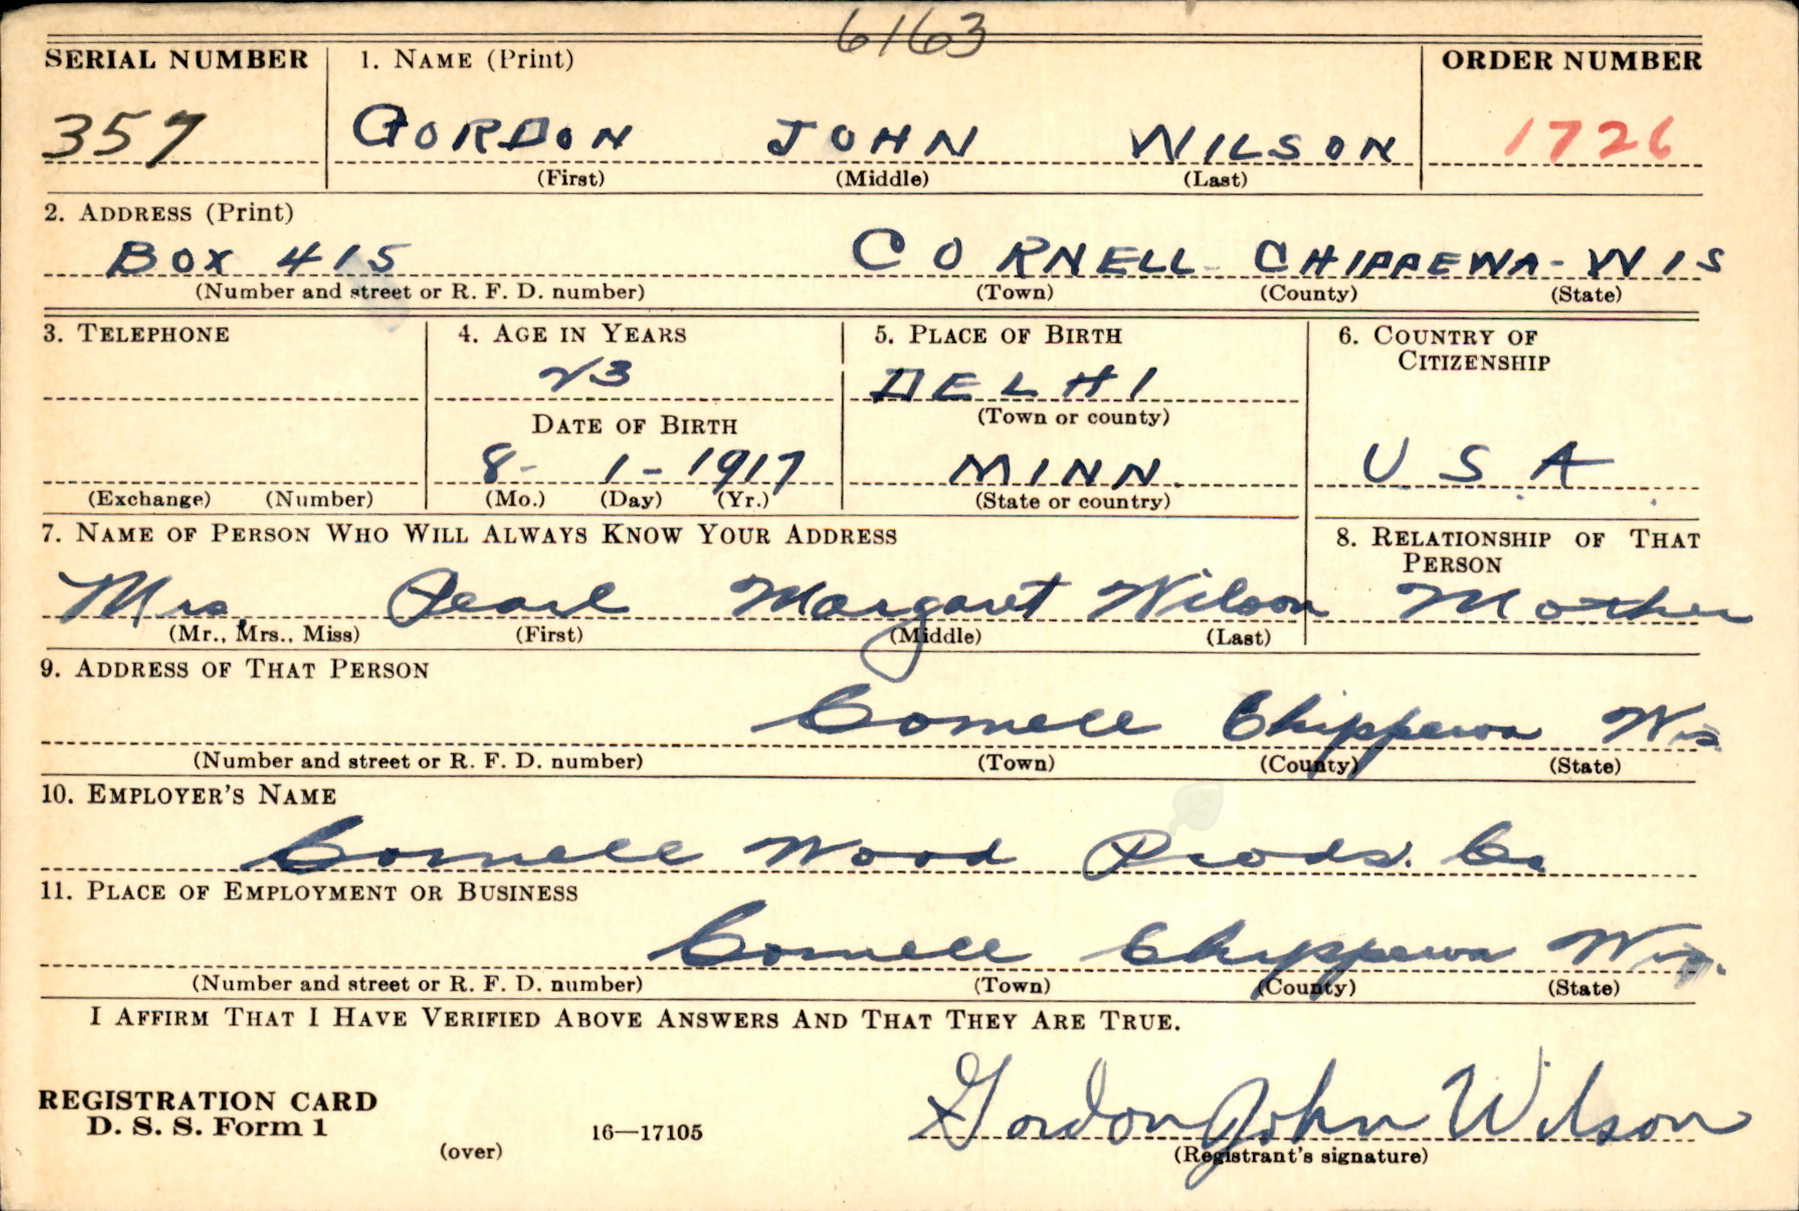 6163
SERIAL NUMBER 1. NAME (Print) ORDER NUMBER
357 GORDON JOHN WILSON 1726
(First) (Middle) (Last)
2. ADDRESS (Print)
BOX 415 CORNELL CHIPPEWA - WIS
(Number and street or R. F. D. number) (Town) (County) (State)
3. TELEPHONE 4. AGE IN YEARS 5. PLACE OF BIRTH 6. COUNTRY OF
CITIZENSHIP
23 DELHI
(Town or county)
DATE OF BIRTH
8- 1- 1917 MINN. U.S.A.
(Exchange) (Number) (Mo.) (Day) (Yr.) (State or country)
7. NAME OF PERSON WHO WILL ALWAYS KNOW YOUR ADDRESS 8. RELATIONSHIP OF THAT
PERSON
Mrs. Pearl Margaret Wilson Mother
(Mr., Mrs., Miss) (First) (Middle) (Last)
9. ADDRESS OF THAT PERSON
Cornell Chippewa Wis
(Number and street or R. F. D. number) (Town) (County) (State)
10. EMPLOYER'S NAME
Cornell Wood Prods. Co
11. PLACE OF EMPLOYMENT OR BUSINESS
Cornell Chippewa Wis.
(Number and street or R. F. D. number) (Town) (County) (State)
I AFFIRM THAT I HAVE VERIFIED ABOVE ANSWERS AND THAT THEY ARE TRUE.
REGISTRATION CARD
D. S. S. Form 1
(over) 16—17105 Gordon John Wilson
(Registrant's signature)